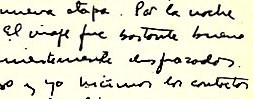 nueva etapa. Por la noche
El viaje fue bastante bueno
nientemente disfrazados.
yo hicimos los contactos